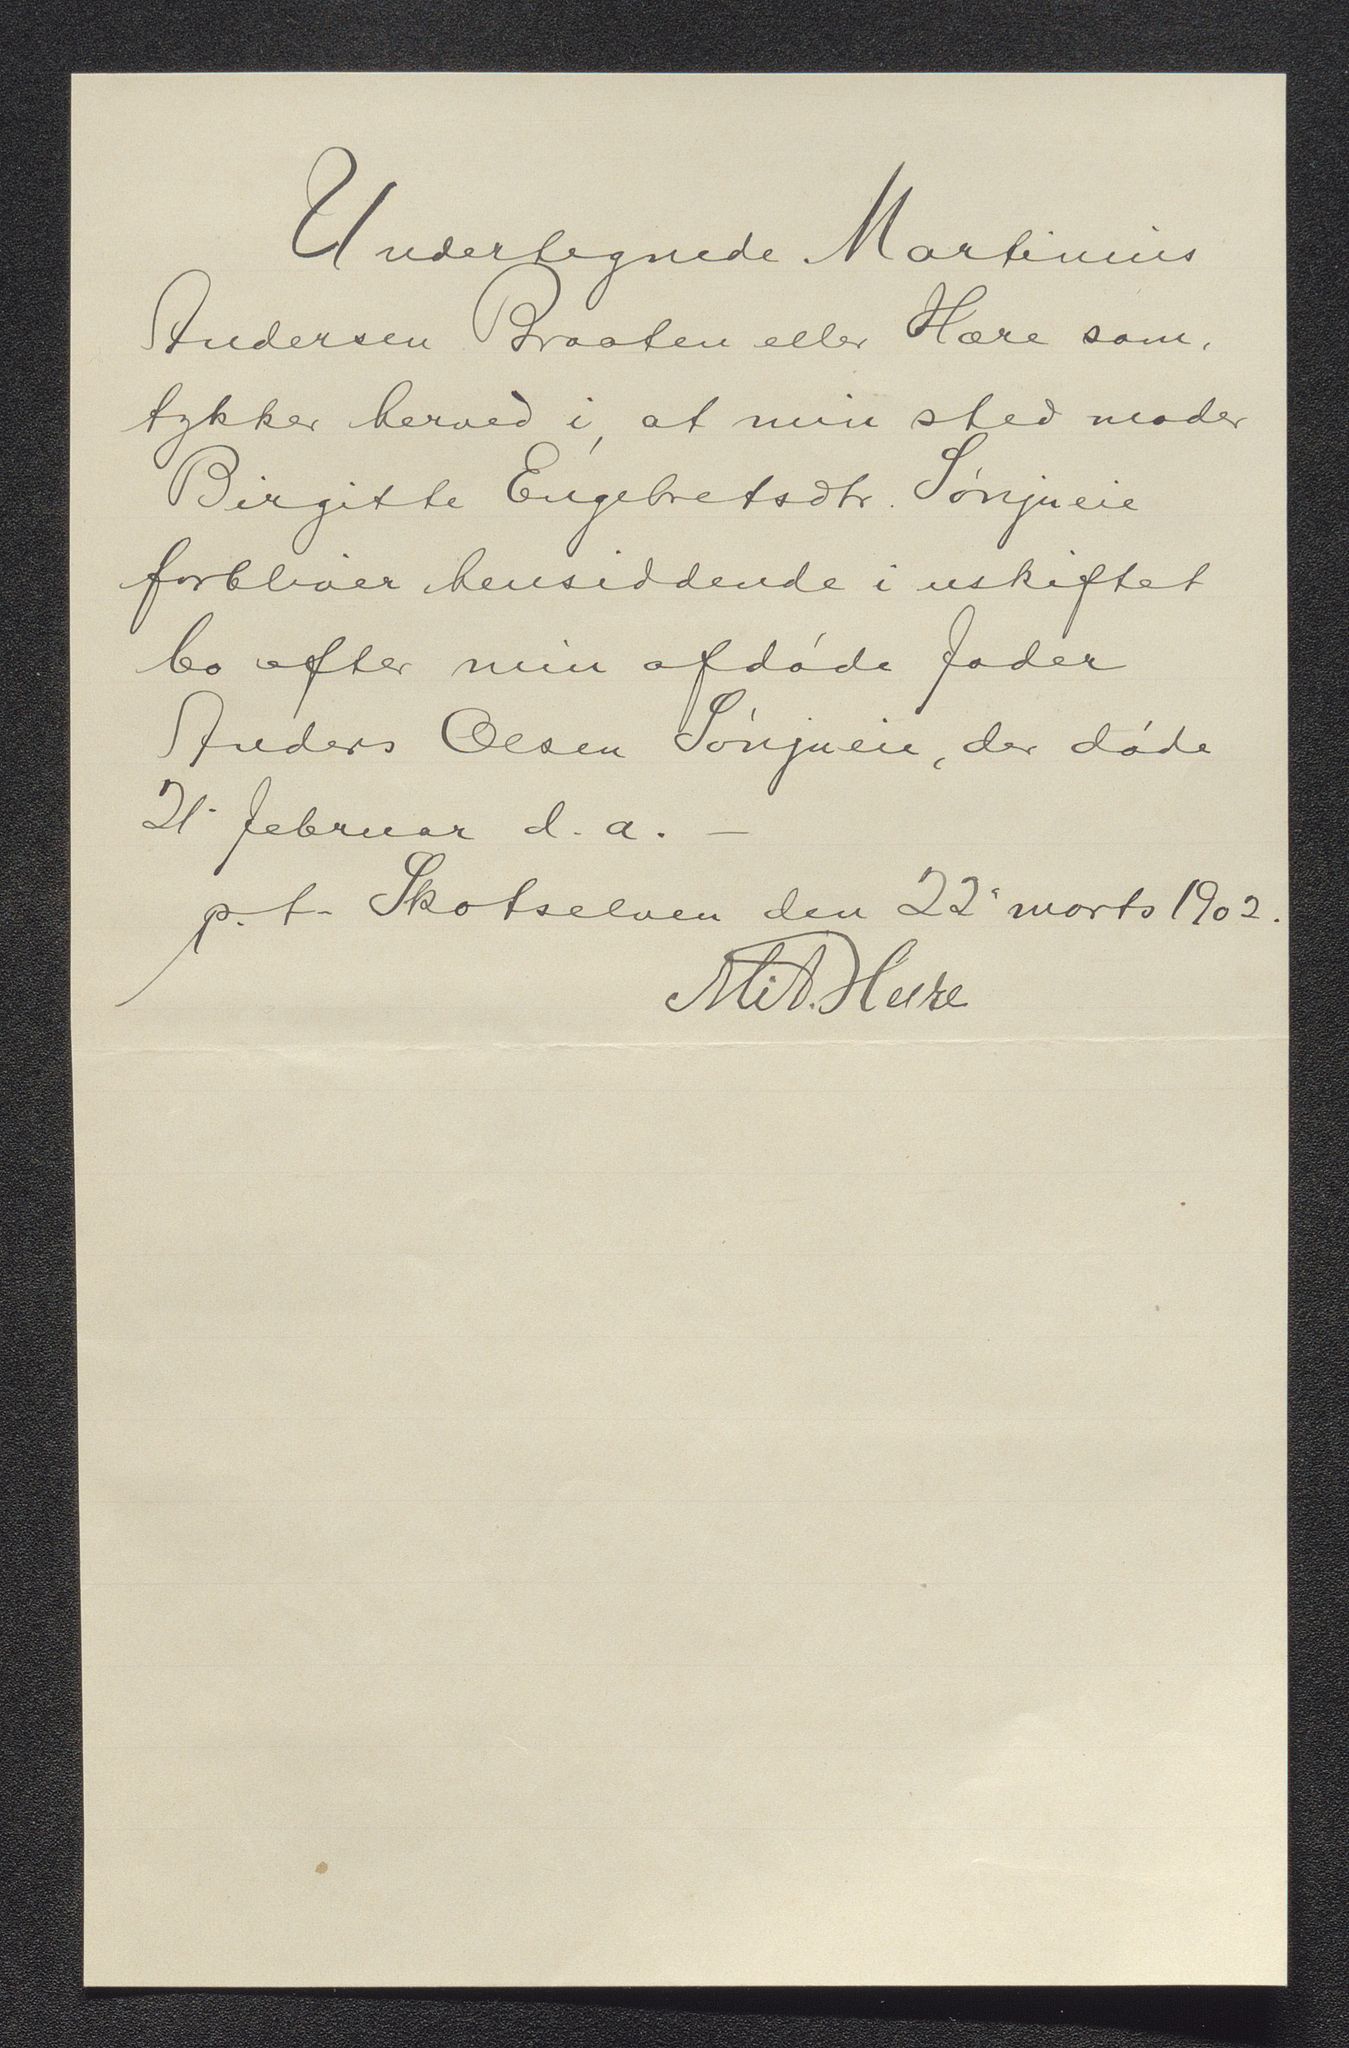 Undertegnede Martinius
Andersen Braaten eller Hære sam-
tykker herved i, at min sted moder
Birgitte Engebretsdtr. Sønjueie
forbliver hensiddende i uskiftet
bo efter min afdøde fader
Anders Olsen Sønjueie, der døde
21. februar d. a. —
p. t. Skotselven den 22. marts 1902.